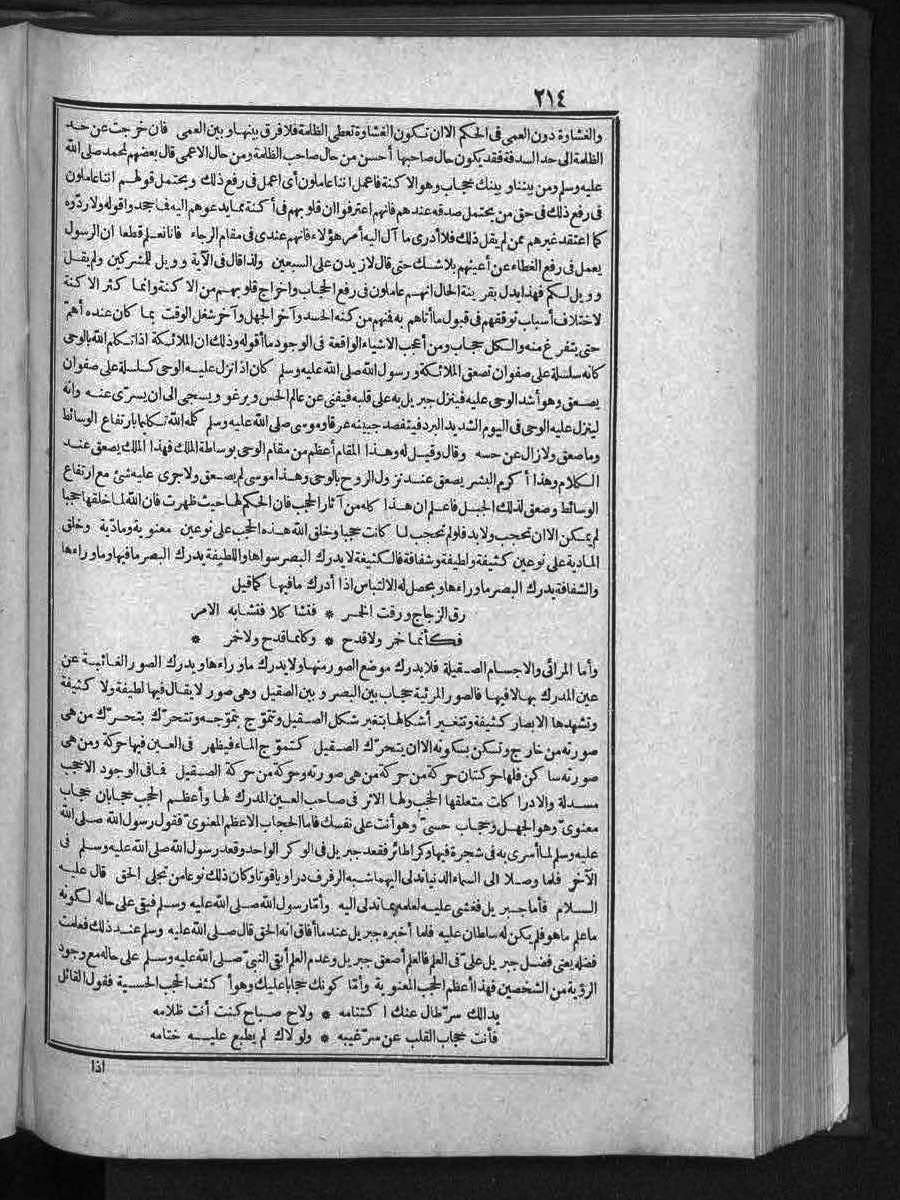 ٢١٤
والغشاوة دون العمى فى الحكم الا ان تكون الغشاوة تعطى الظلمة فلا فرق بينها وبين العمى فان خرجت عن حد
الظلمة الى حد السدفة فقد يكون حال صاحبها أحسن من حال صاحب الظلمة ومن حال الاعمى قال بعضهم لمحمد صلى الله
عليه وسلم ومن بيننا وبينك حجاب وهو الاكنة فاعمل اننا عاملون أى اعمل فى رفع ذلك ويحتمل قولهم اننا عاملون
فى رفع ذلك فى حق من يحتمل صدقه عندهم فانهم اعترفوا ان قلوبهم فى أكنة مما يدعوهم اليه فما جحدوا قوله ولا ردّوه
كما اعتقد غيرهم ممن لم يقل ذلك فلا أدرى ما آل اليه أمر هؤلاء فانهم عندى فى مقام الرجاء فانا نعلم قطعا ان الرسول
يعمل فى رفع الغطاء عن أعينهم بلا شك حتى قال لازيدن على السبعين ولذا قال فى الآية وويل للمشركين ولم يقل
وويل لكم فهذا يدل بقرينة الحال انهم عاملون فى رفع الحجاب واخراج قلوبهم من الاكنة وانما كثر الاكنة
لاختلاف أسباب توقفهم فى قبول ما أتاهم به فمنهم من كنه الحسد وآخر الجهل وآخر شغل الوقت بما كان عنده أهمّ
حتى يتفرغ منه والكل حجاب ومن أعجب الاشياء الواقعة فى الوجود ما أقوله وذلك ان الملائكة اذا تكلم الله بالوحى
كانه سلسلة على صفوان تصعق الملائكة ورسول الله صلى الله عليه وسلم كان اذا نزل عليه الوحى كسلسلة على صفوان
يصعق وهو أشد الوحى عليه فينزل جبريل به على قلبه فيفنى عن عالم الحس ويرغو ويسجى الى ان يسرّى عنه وانه
لينزل عليه الوحى فى اليوم الشديد البرد فيتفصد جبينه عرقا وموسى صلى الله عليه وسلم كلمه الله تكليما بارتفاع الوسائط
وما صعق ولا زال عن حسه وقال وقيل له وهذا المقام أعظم من مقام الوحى بوساطة الملك فهذا الملك يصعق عند
الكلام وهذا أكرم البشر يصعق عند نزول الروح بالوحى وهذا موسى لم يصعق ولا جرى عليه شئ مع ارتفاع
الوسائط وصعق لذلك الجبل فاعلم ان هذا كله من آثار الحجب فان الحكم لها حيث ظهرت فان الله لما خلقها حجبا
لم يمكن الا ان تحجب ولا بد فلو لم تحجب لما كانت حجبا وخلق الله هذه الحجب على نوعين معنوية ومادّية وخلق
المادية على نوعين كثيفة ولطيفة وشفافة فالكثيفة لا يدرك البصر سواها واللطيفة يدرك البصر ما فيها وما وراءها
والشفافة يدرك البصر ما وراءها ويحصل له الالتباس اذا أدرك ما فيها كما قيل
رق الزجاج ورقت الخمر * فتشا كلا فتشابه الامر
فكأنما خمر ولا قدح * وكأنما قدح ولا خمر *
وأما المرائى والاجسام الصقيلة فلا يدرك موضع الصور منها ولا يدرك ما وراءها ويدرك الصور الغائبة عن
عين المدرك بها لا فيها فالصور المرئية حجاب بين البصر وبين الصقيل وهى صور لا يقال فيها لطيفة ولا كثيفة
وتشهدها الابصار كثيفة وتتغير أشكالها بتغير شكل الصقيل وتتموّج بتموّجه وتتحرّك بتحرّك من هى
صورته من خارج وتسكن بسكونه الا ان يتحرّك الصقيل كتموّج الماء فيظهر فى العين فيها حركة ومن هى
صورته ساكن فلها حركتان حركة من حركة من هى صورته وحركة من حركة الصقيل فما فى الوجود الا حجب
مسدلة والادراكات متعلقها الحجب ولها الاثر فى صاحب العين المدرك لها وأعظم الحجب حجابان حجاب
معنوىّ وهو الجهل وحجاب حسىّ وهو أنت على نفسك فاما الحجاب الاعظم المعنوىّ فقول رسول الله صلى الله
عليه وسلم لما أسرى به فى شجرة فيها وكرا طائر فقعد جبريل فى الوكر الواحد وقعد رسول الله صلى الله عليه وسلم فى
الآخر فلما وصلا الى السماء الدنيا تدلى اليهما شبه الرفرف درا وياقوتا وكان ذلك نوعا من تجلى الحق قال عليه
السلام فأما جبريل فغشى عليه لعلمه بما تدلى اليه وأمّا رسول الله صلى الله عليه وسلم فبقى على حاله لكونه
ما علم ما هو فلم يكن له سلطان عليه فلما أخبره جبريل عند ما أفاق انه الحق قال صلى الله عليه وسلم عند ذلك فعلمت
فضله يعنى فضل جبريل علىّ فى العلم فالعلم أصعق جبريل وعدم العلم أبقى النبىّ صلى الله عليه وسلم على حاله مع وجود
الرؤية من الشخصين فهذا أعظم الحجب المعنوية وأمّا كونك حجابا عليك وهو أكثف الحجب الحسية فقول القائل
بدا لك سرّ طال عنك اكتتامه * ولاح صباح كنت أنت ظلامه
فأنت حجاب القلب عن سرّ غيبه * ولولاك لم يطبع عليه ختامه
اذا